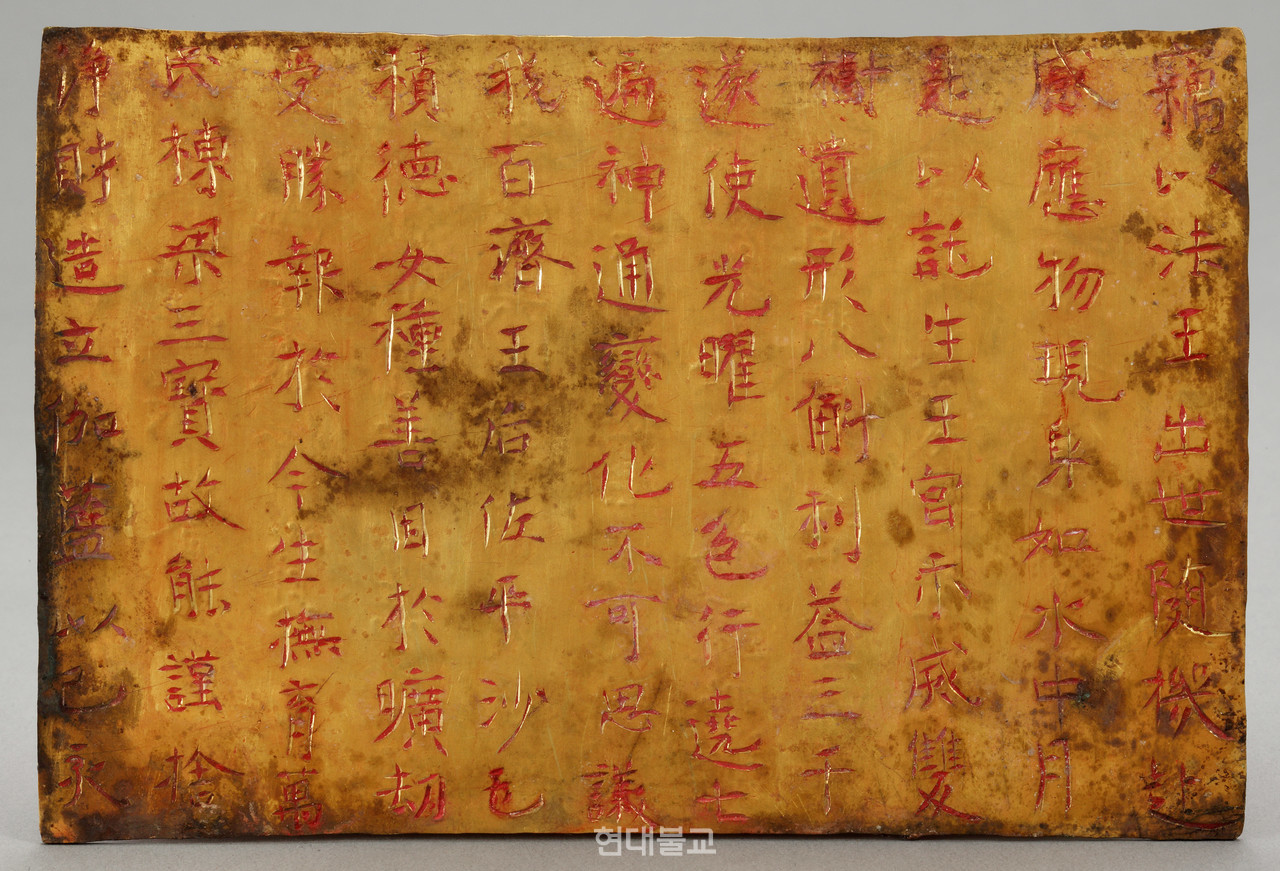 竊以法王出世随機赴
感應物現身如水中月
是以託生王宮示㓕雙
樹遺形八斛利益三千
遂使光曜五色行遶七
遍神通變化不可思議
我百濟王后佐平沙乇
積德女種善因於曠劫
受勝報於今生撫育萬
民棟梁三寶故能謹捨
淨財造立伽藍以己亥
현대불교